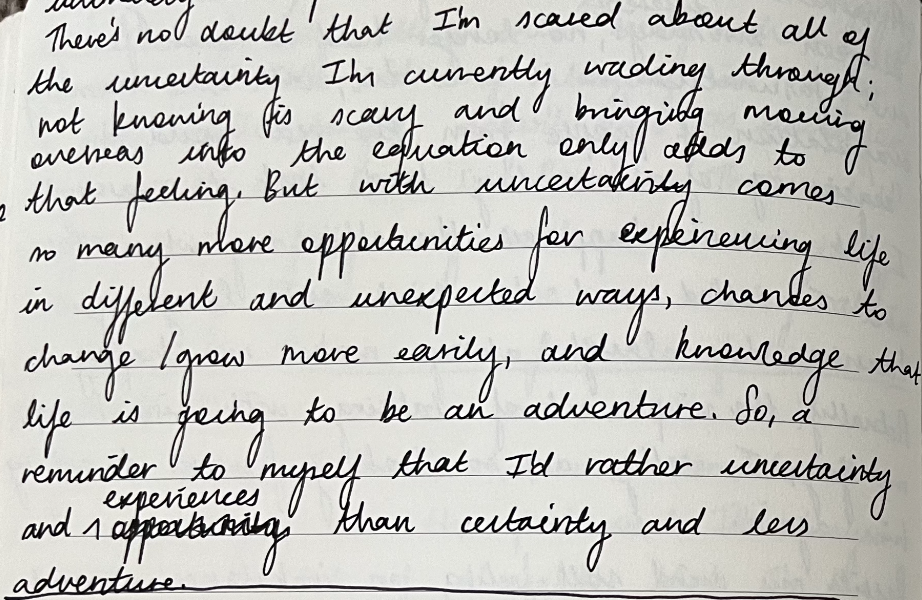 There's no doubt that I'm scared about all of
the uncertainty I'm currently wading through;
not knowing is scary and bringing moving
overseas into the equation only adds to
that feeling. But with uncertainty comes
so many more opportunities for experiencing life
in different and unexpected ways, chances to
change / grow more easily, and knowledge that
life is going to be an adventure. So, a
reminder to myself that I'd rather uncertainty
experiences
and than certainty and less
adventure.